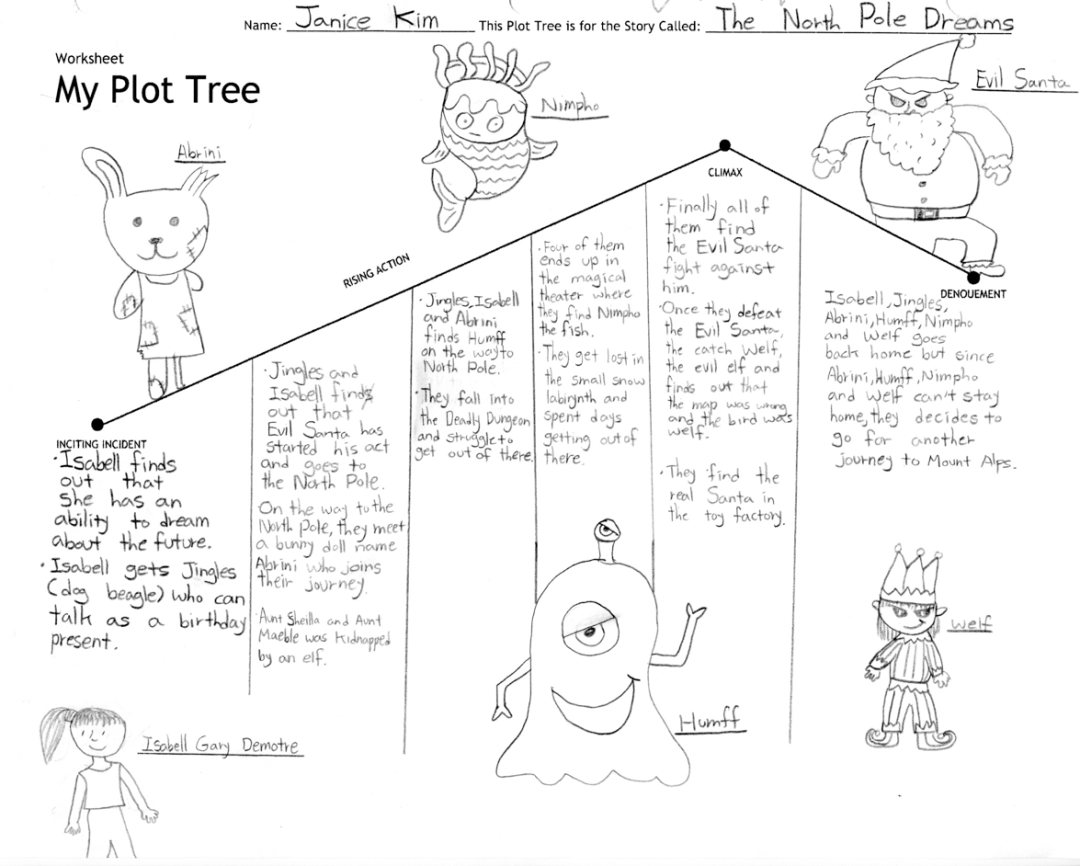 Name: Janice Kim This Plot Tree is for the Story Called: The North Pole Dreams
Worksheet
My Plot Tree
Abrini
Nimpho
Evil Santa
CLIMAX
RISING ACTION
DENOUEMENT
INCITING INCIDENT
·Isabell finds
out that
she has an
ability to dream
about the future.
·Isabell gets Jingles
(dog beagle) who can
talk as a birthday
present.
·Jingles and
Isabell finds
out that
Evil Santa has
started his act
and goes to
the North Pole.
On the way to the
North Pole, they meet
a bunny doll name
Abrini who joins
their journey.
·Aunt Sheilla and Aunt
Maeble was kidnapped
by an elf.
·Jingles, Isabell
and Abrini
finds Humff
on the way to
North Pole.
·They fall into
the Deadly Dungeon
and struggle to
get out of there.
·Four of them
ends up in
the magical
theater where
they find Nimpho
the fish.
·They get lost in
the small snow
labirynth and
spent days
getting out of
there.
·Finally all of
them find
the Evil Santa
fight against
him.
·Once they defeat
the Evil Santa,
the catch Welf,
the evil elf and
finds out that
the map was wrong
and the bird was
welf.
·They find the
real Santa in
the toy factory.
Isabell, Jingles,
Abrini, Humff, Nimpho
and Welf goes
back home but since
Abrini, Humff, Nimpho
and Welf can't stay
home, they decides to
go for another
journey to Mount Alps.
Isabell Gary Demotre
Humff
Welf